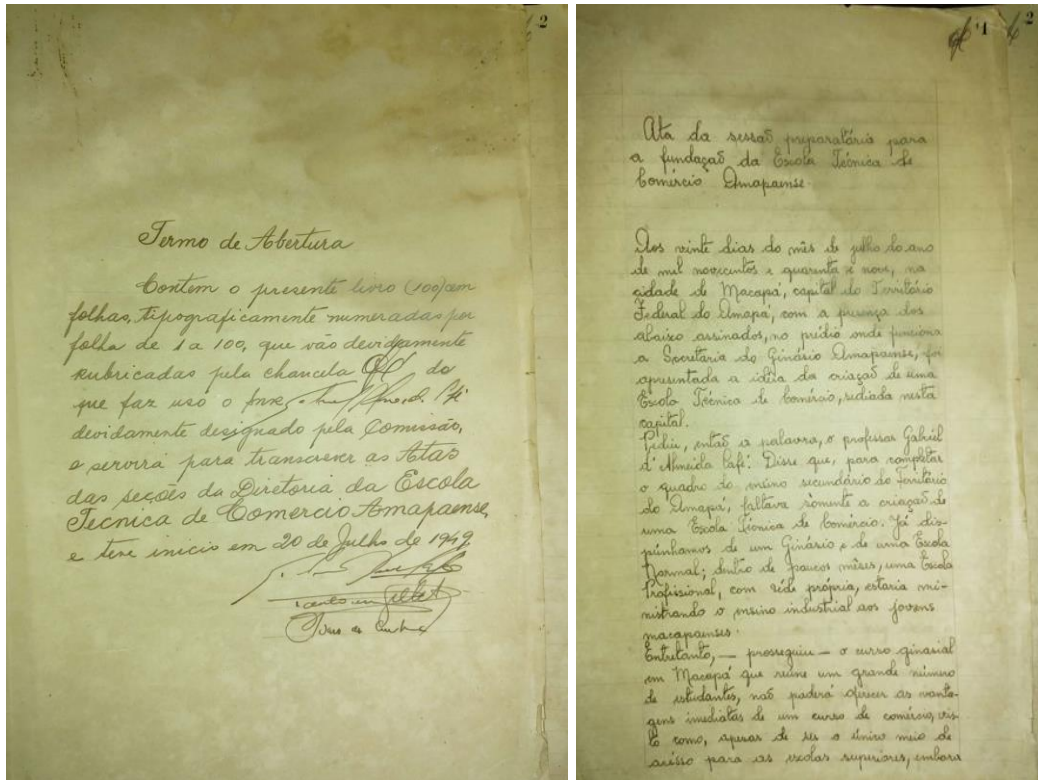 2
Termo de Abertura
Contem o presente livro (100) cem
folhas, tipograficamente numeradas por
folha de 1 a 100, que vão devidamente
rubricadas pela chancela do
que faz uso o
devidamente designado pela Comissão,
e servirá para transcrever as Atas
das secções da Diretoria da Escola
Tecnica de Comercio Amapaense,
e teve inicio em 20 de Julho de 1949.
1
2
Ata da sessaõ preparatória para
a fundaçaõ da Escola Técnica de
Comércio Amapaense.
Aos vinte dias do mês de julho do ano
de mil novecentos e quarenta e nove, na
cidade de Macapá, capital do Território
Federal do Amapá, com a presença dos
abaixo assinados, no prédio onde funciona
a Secretaria do Ginásio Amapaense, foi
apresentada a idéia da criaçaõ de uma
Escola Técnica de Comércio, sediada nesta
capital.
Pediu, entaõ a palavra, o professor Gabriel
d'Almeida Café. Disse que, para completar
o quadro do ensino secundário do Território
do Amapá, faltava sòmente a criaçaõ de
uma Escola Técnica de Comércio. Já dis-
púnhamos de um Ginásio e de uma Escola
Normal; dentro de poucos mêses, uma Escola
Profissional, com séde própria, estaria mi-
nistrando o ensino industrial aos jovens
macapaenses.
Entretanto, — prosseguiu — o curso ginasial
em Macapá que reúne um grande número
de estudantes, naõ poderá oferecer as vanta-
gens imediatas de um curso de comércio, vis-
to como, apesar de ser o único meio de
acésso para as escolas superiores, embora